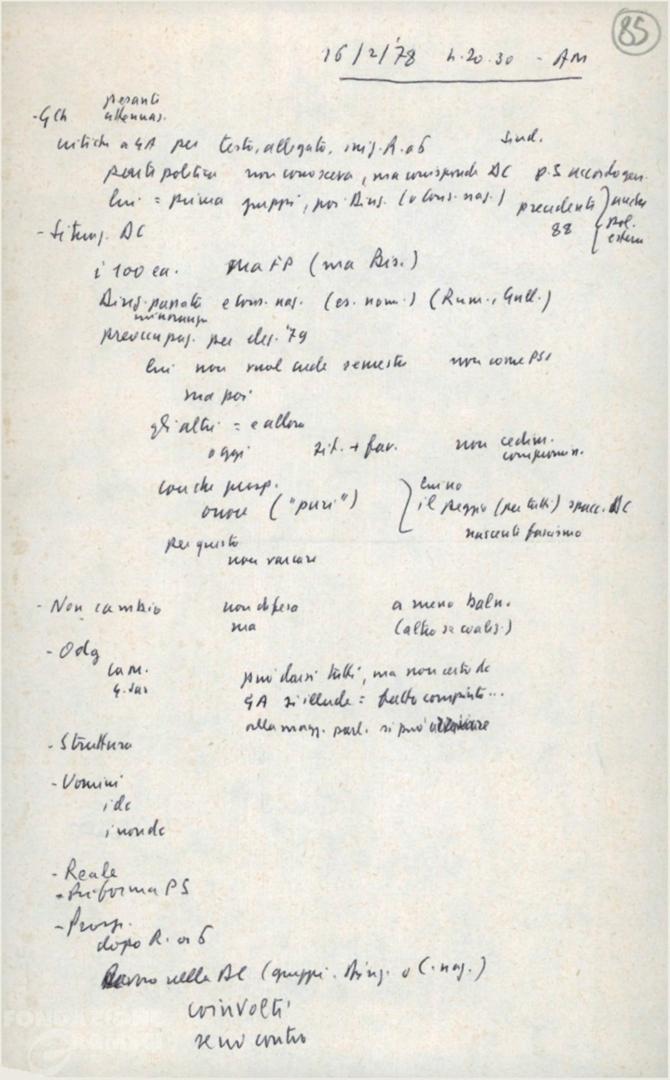 85
16/2/'78 h. 20.30 - AM
pesanti
- Gch attenuaz.
critiche a GA per testo, allegato, iniz. R. a 6 sind.
parte politica non conosceva, ma corrisponde DC p. S accordo gen.
lui = prima gruppi, poi Direz. (o Cons. naz.) precedente anche
88 pol. estera
- Situaz. DC
i 100 ca. ma FP (ma Bis.)
Direz. passata e Cons. naz. (es. nom.) (Rum., Gull.)
minoranza
preoccupaz. per elez. '79
lui non vuol cade semestre non come PSI
ma poi
gli altri = e allora
oggi sit. + fav. non cedim.
compromis.
con che prosp.
onore ("puri") meno
il peggio (per tutti) spacc. DC
nascente fascismo
per questo
non varcare
- Non cambio non dipeso a meno baln.
ma (altro se coaliz.)
- Odg
Cam.
può darsi tutti, ma non certo dc
GA si illude = fatto compiuto...
alla magg. parl. si può arrivare
- Struttura
- Uomini
i dc
i non dc
- Reale
- Riforma PS
- Prosp.
dopo R. a 6
nella DC (gruppi. Direz. o C. naz.)
coinvolti
se no contro
FONDAZIONE
GRAMSCI